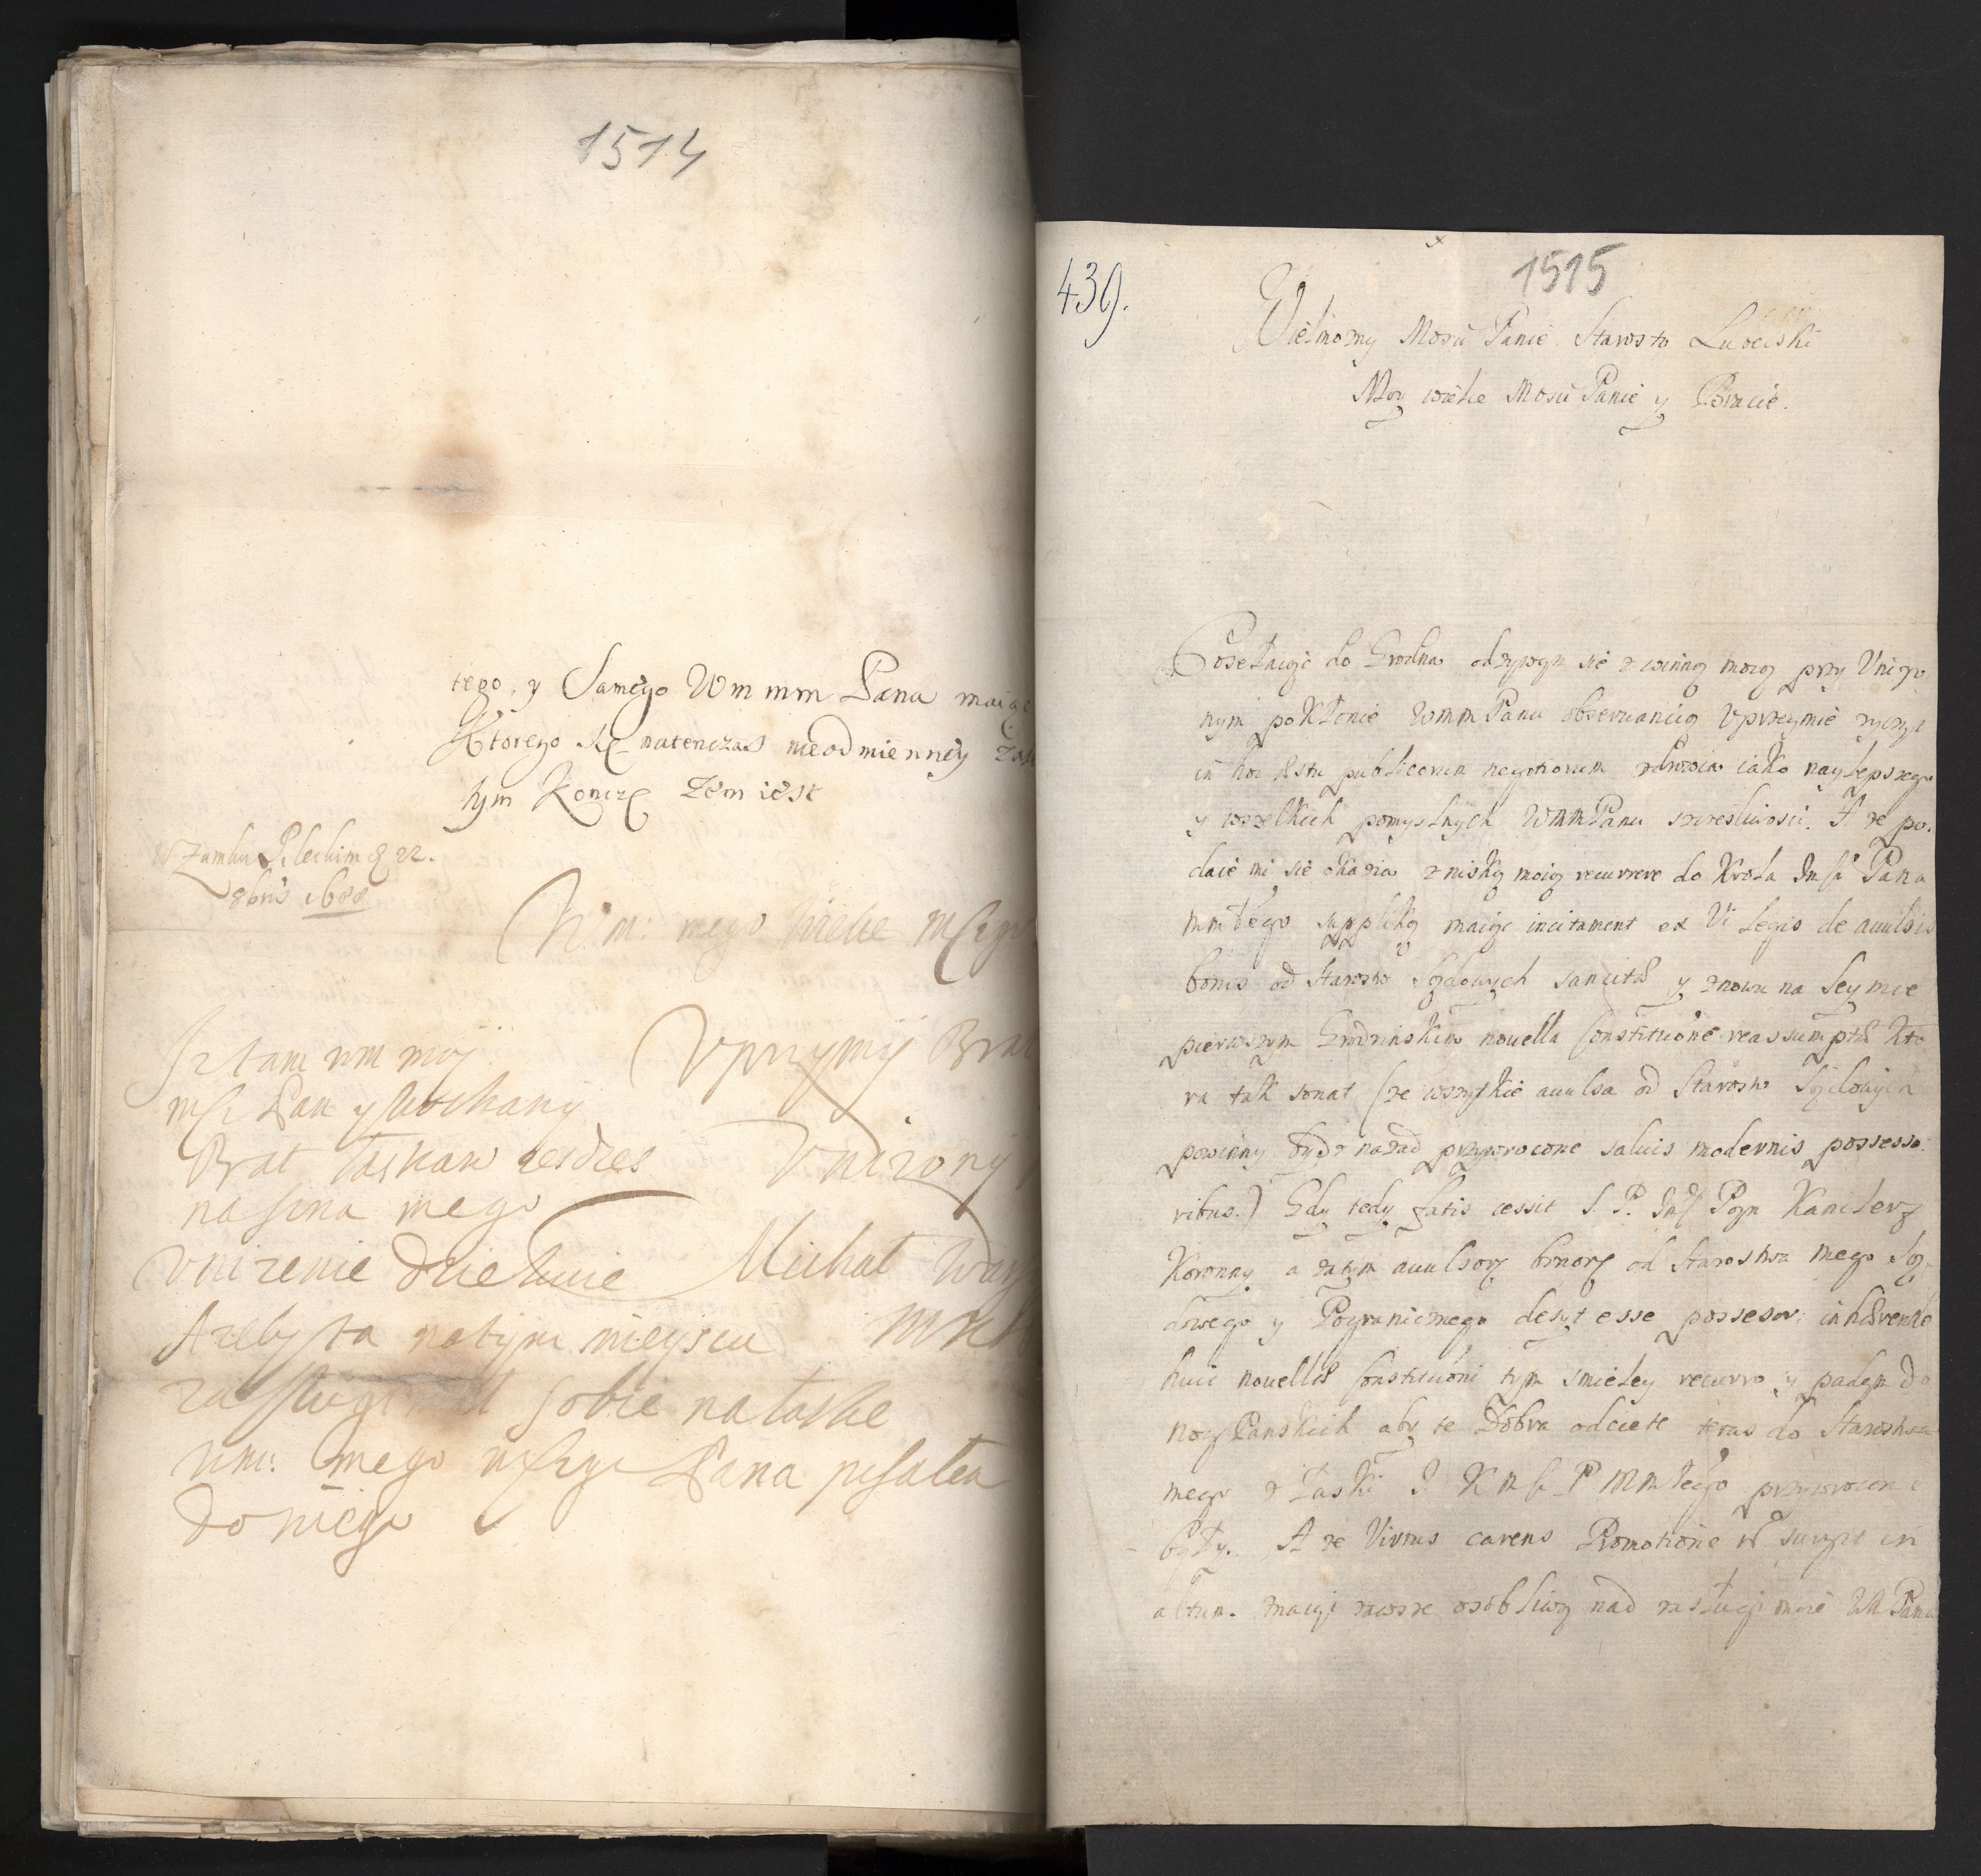 1514
tego, y Samego Wm mm Pana maiąc
Ktorego się natenczas nieodmienney
tym Konczę Zem iest
W Zamku Pileckim d 22.
8bris 1688
Wm: mego wielce Mscge
Uprzymy Brat
Unizony
Michał War
Iztam wm moy
msci Pan y kochany
Brat łaskaw
na syna mego
unizenie dziekuie
Azeby ta natym mieyscu
zasługi sobie na łaske
wm: mego mscge Pana
do niego
439.
1515
Wielmozny Mosci Panie Starosto Lubelski
Moy wielce Mosci Panie y Bracie.
Posełaiąc do Grodna odzywam się z winną moią przy Unizo
nym pokłonie WMM Panu obserwancią Uprzeymie zycząc
in hoc æstu publicorum negotiorum zdrowia iako naylepszego
y wszelkich pomyslnych WMMPanu szczesliwosci. A ze po,
daie mi się okazia z niską moią recurrere do Krola Jmsci Pana
mmłego suppliką maiąc incitament ex Vi Legis de auulsis
bonis od Starostw Sądowych sancitæ y znowu na Seymie
pierwszym Grodzinskim nouella Constitutione reassumptæ Kto
ra tak sonat (ze wszytkie auulsa od Starostw Sądowych
powinny bydz nazad przywrocone saluis modernis possesso
ribus.) Gdy tedy fatis cessit S. P. Jmsc Pan Kanclerz
Koronny a zatym auulsorum bonorum od Starostwa mego Są,
dowego y Pogranicznego desyt esse possesor; inhærendo
huic nouellæ Constitutioni tym smieley recurro y padam do
nog Panskich aby te Dobra odciete teras do Starostwa
mego z Łaski J K M sci P MMłego przywrocone
były. A ze Virtus carens Promotione surgit in
altum. maiąc zawsze osobliwą nad zasługi moie WM Pana